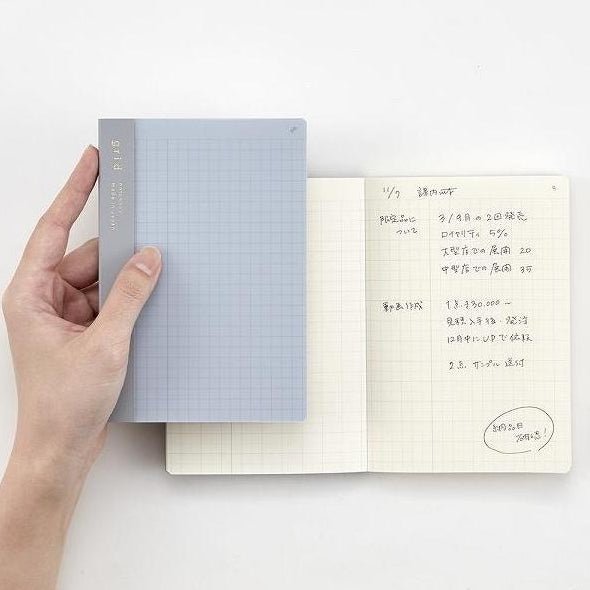 grid
made in japan
11/7 課内mt
限定品に
ついて
3/9月の2回発売
ロイヤリティ 5%
大型店での展開 20
中型店での展開 35
動画作成
1点 ¥30,000〜
見積入手後・発注
12月中にUPで依頼
2点 サンプル送付
納品日